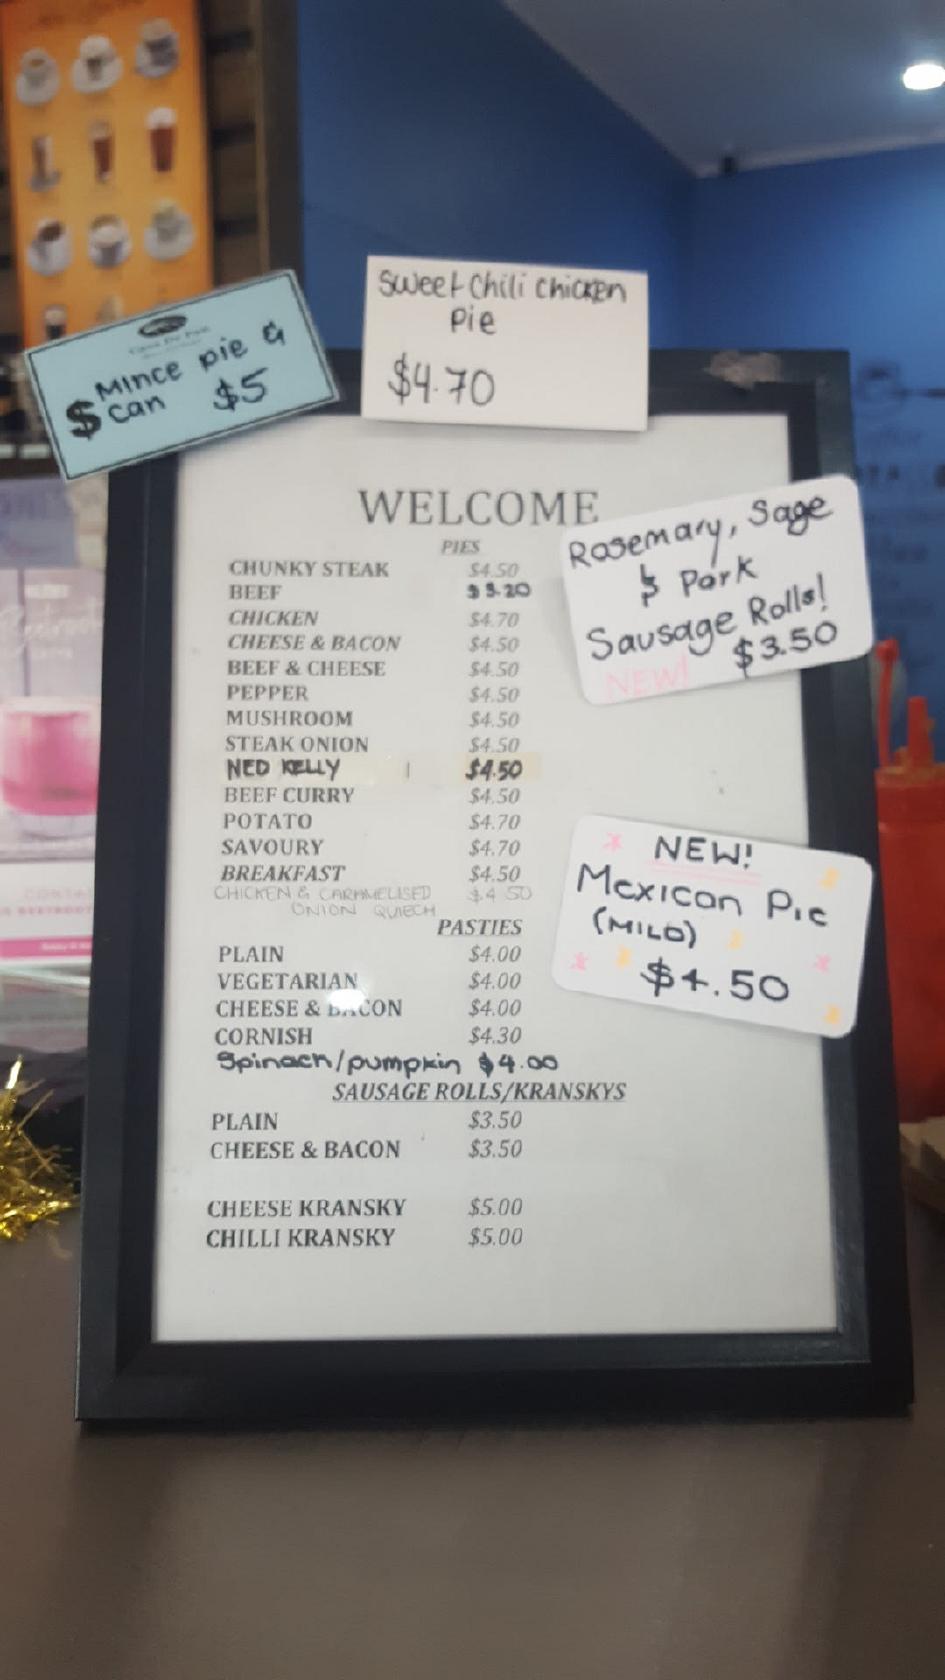 Sweet Chili chicken
Pie
$4.70
Mince pie &
$ can $5
WELCOME
PIES
CHUNKY STEAK $4.50
BEEF $3.20
CHICKEN $4.70
CHEESE & BACON $4.50
BEEF & CHEESE $4.50
PEPPER $4.50
MUSHROOM $4.50
STEAK ONION $4.50
NED KELLY $4.50
BEEF CURRY $4.50
POTATO $4.70
SAVOURY $4.70
BREAKFAST $4.50
CHICKEN & CARAMELISED $4.50
ONION QUIECH
PASTIES
PLAIN $4.00
VEGETARIAN $4.00
CHEESE & BACON $4.00
CORNISH $4.30
Spinach/pumpkin $4.00
SAUSAGE ROLLS/KRANSKYS
PLAIN $3.50
CHEESE & BACON $3.50
CHEESE KRANSKY $5.00
CHILLI KRANSKY $5.00
Rosemary, Sage
& Pork
Sausage Rolls!
NEW! $3.50
NEW!
Mexican Pie
(MILD)
$4.50